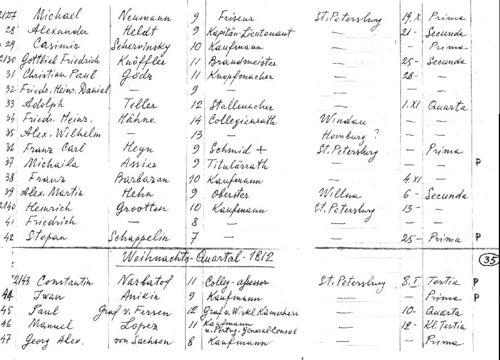 2127 Michael Neumann 9 Friseur St. Petersburg 19. X. Prima
28 Alexander Heldt 9 Kapitän-Lieutenant — 21- Secunda
29 Casimir Scherwinsky 10 Kaufmann — — Prima
2130 Gottlieb Friedrich Knöffler 11 Brandmeister — 25- Secunda
31 Christian Paul 11 Knopfmacher — 28- —
32 Frieds. Heinr. Daniel — 9 — — —
33 Adolph Teller 12 Stallmacher — 1. XI Quarta
34 Frieds. Heinr. Hähne 14 Collegienrath Windau — —
35 Alex. Wilhelm — 13 — Homburg ? — —
36 Franz Carl Heyn 9 Schmid + St. Petersburg — Prima
37 Michaila Assier 9 Titulärrath — — — P
38 Franz Barbazan 10 Kaufmann — 4. XI — —
39 Alex. Martin Hehn 9 Oberster Wilna 6- Secunda
2140 Heinrich Grootten 10 Kaufmann St. Petersburg 13- —
41 Friedrich — 8 — — —
42 Stepan Schappelin 7 — 25- Prima P
Weihnachts-Quartal 1812 35
2143 Constantin Narbatof 11 Colleg.-assessor St. Petersburg 8. I. Tertia P
44 Iwan Anikin 9 Kaufmann — — Prima P
45 Paul Graf v. Fersen 12 Graf u. Wirkl. Kamerherr — 10- Quarta
46 Manuel Lopez 11 Kaufmann u. Portug. General Consul — 18- Kl. Tertia
47 Georg Alex. von Sachsen 8 Kaufmann — — Prima